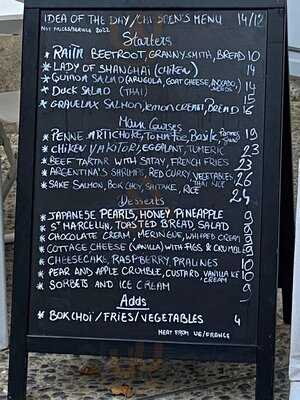 IDEA OF THE DAY/CHILDREN'S MENU 14/12
NET PRICES/SERVICE 2022
Starters
* RAITA BEETROOT, GRANNY SMITH, BREAD 10
* LADY OF SHANGHAI (CHIKEN) 14
* QUINOA SALAD (ARUGULA, GOAT CHEESE, AVOCADO, 14
* DUCK SALAD (THAI) 15
* GRAVELAX SALMON, LEMON CREAM, BREAD 16
Main Courses
* PENNE ARTICHOKE, TOMATOE, BASILIC, PARMES 19
* CHIKEN YAKITORI, EGGPLANT, TUMERIC 23
* BEEF TARTAR WITH SATAY, FRENCH FRIES 23
* ARGENTINA'S SHRIMPS, RED CURRY, VEGETABLES 26
THAI RICE
* SAKE SALMON, BOK CHOY, SHITAKE, RICE 24
Desserts
* JAPANESE PEARLS, HONEY PINEAPPLE 9
* ST MARCELLIN, TOASTED BREAD, SALAD 9
* CHOCOLATE CREAM, MERINGUE, WHIPPED CREAM 9
* COTTAGE CHEESE (VANILLA) WITH FIGS, & CRUMBLE 9
* CHEESECAKE, RASPBERRY, PRALINES 10
* PEAR AND APPLE CRUMBLE, CUSTARD VANILLA ICE 10
CREAM
* SORBETS AND ICE CREAM 9
Adds
* BOK CHOÏ/FRIES/VEGETABLES 4
MEAT FROM UE/FRANCE